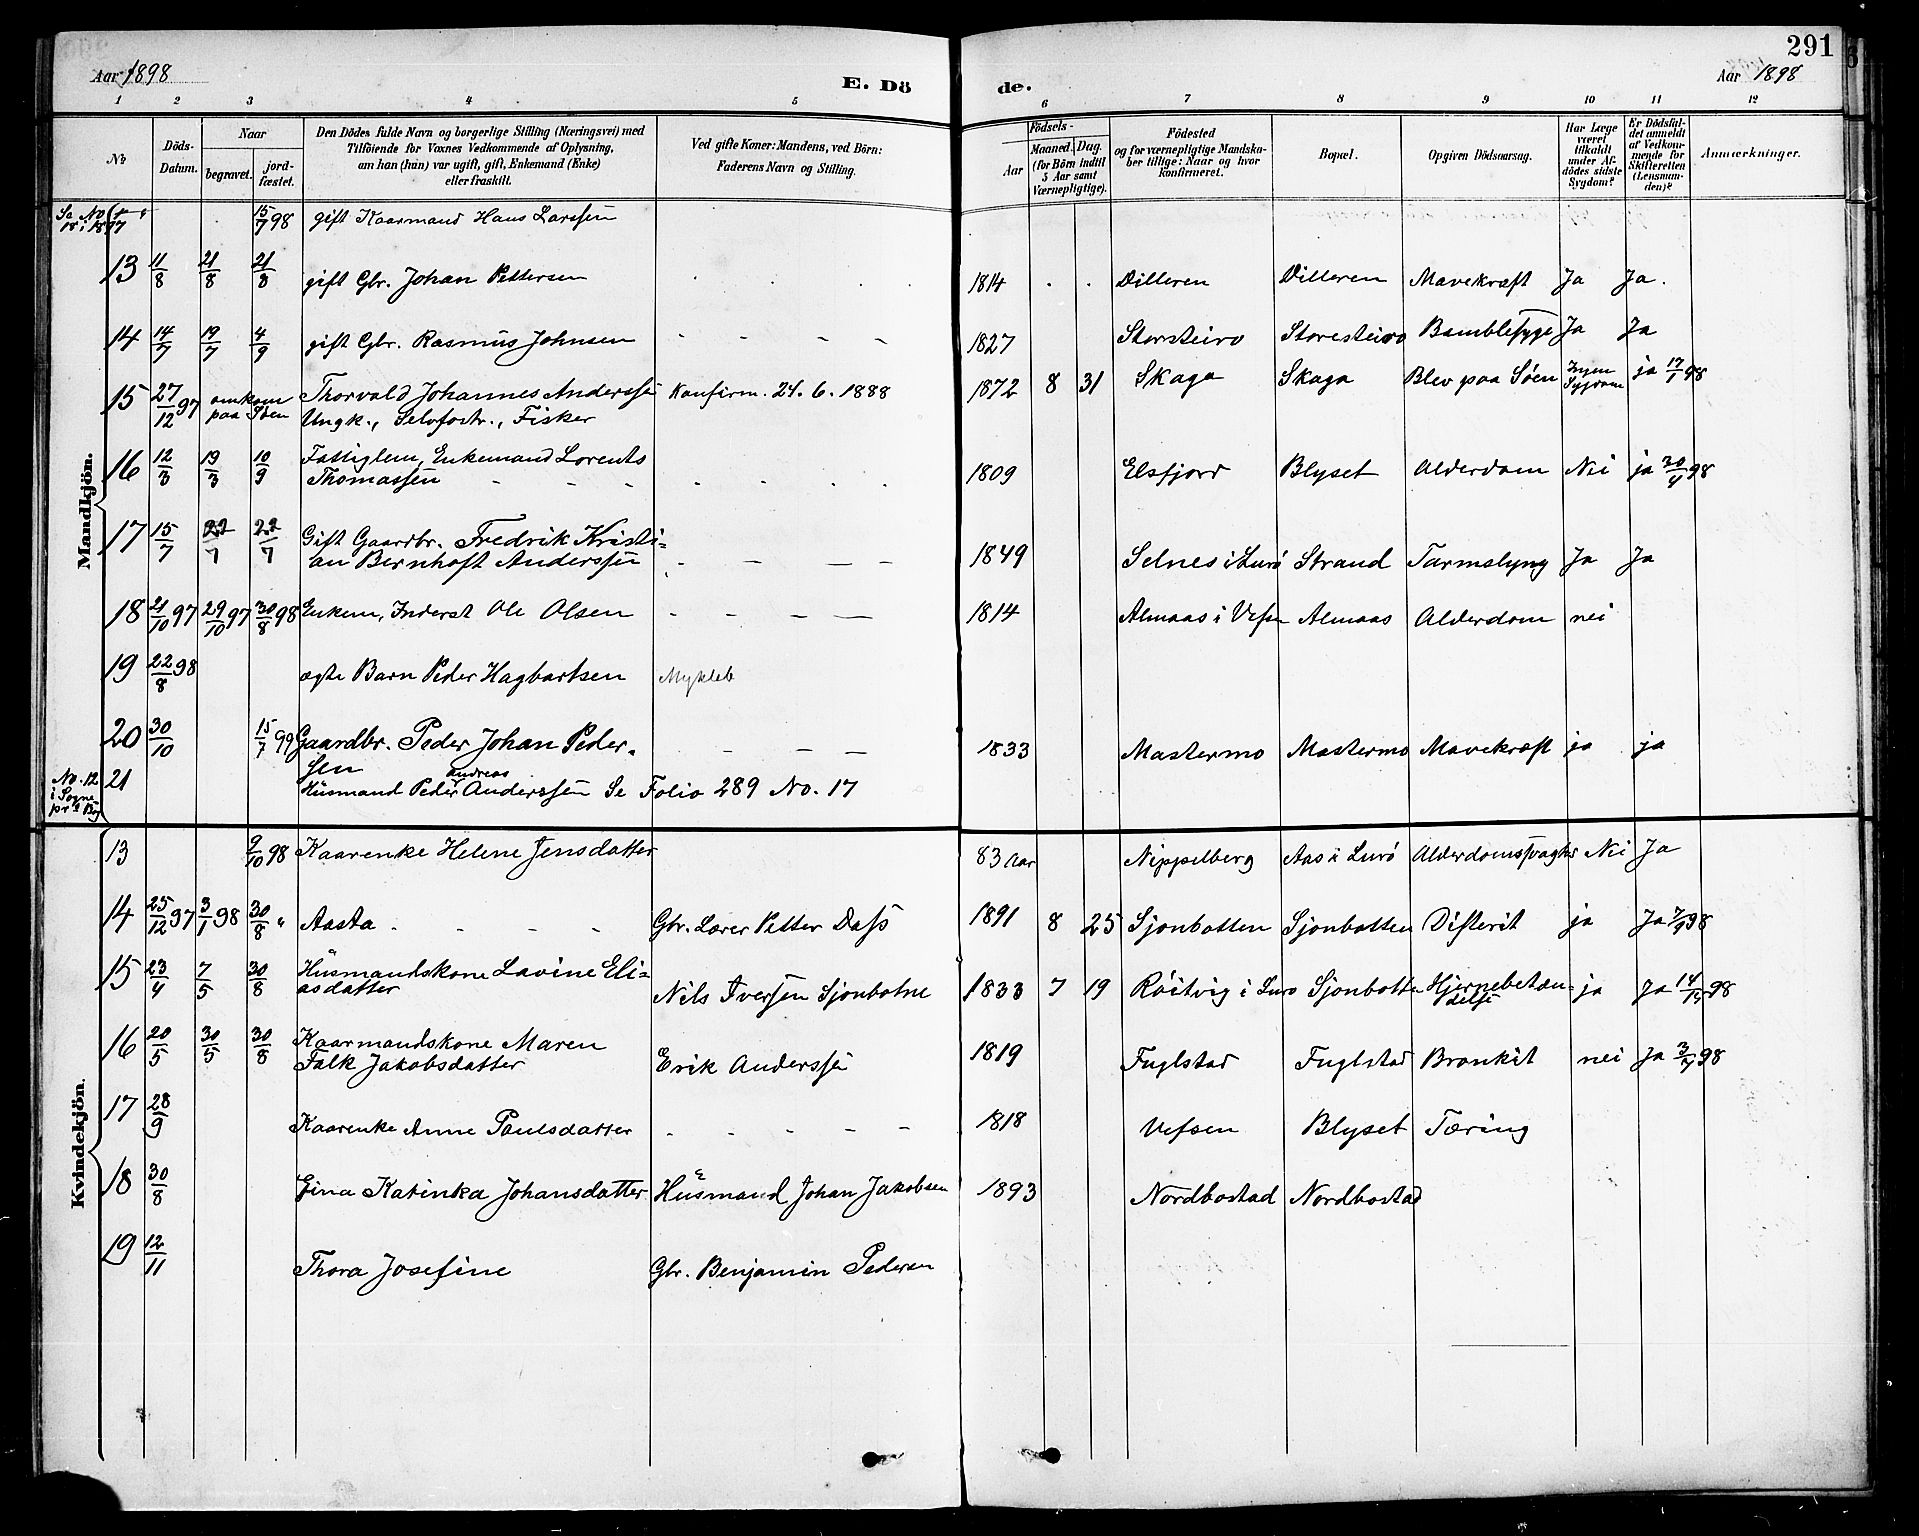 291
Aar 1898 E. Dö de. Aar 1898
1 2 3 4 5 6 7 8 9 10 11 12
No
Döds-Datum.
Naar
begravet. jordfæstet.
Den Dödes fulde Navn og borgerlige Stilling (Næringsvei) med
Tilföiende for Voxnes Vedkommende af Oplysning,
om han (hun) var ugift, gift, Enkemand (Enke)
eller fraskilt.
Ved gifte Koner: Mandens, ved Börn:
Faderens Navn og Stilling.
Födsels-
Aar Maaned. Dag.
(for Börn indtil
5 Aar samt
Værnepligtige).
Födested
og for værnepligtige Mandska-
ber tillige: Naar og hvor
konfirmeret.
Bopæl.
Opgiven Dödsaarsag.
Har Læge
været
tilkaldt
under Af-
dödes sidste
Sygdom?
Er Dödsfal-
det anmeldt
af Vedkom-
mende for
Skifteretten
(Lensman-
den)?
Anmærkninger.
Mandkjön.
Se No
18 i 1897 15/7 98 gift Kaarmand Hans Larssen
13 11/8 21/8 21/8 gift Gbr. Johan Pettersen 1814 Dilleren Dilleren Mavekræft Ja Ja.
14 14/7 19/7 4/9 gift Gbr. Rasmus Johnsen - - - - 1827 Storsteiro Storesteiro Bamblesyge Ja Ja
15 27/12 97 omkom paa Söen Thorvald Johannes Anderssen Konfirm. 24. 6. 1888 1872 8 31 Skaga Skaga Blev paa Söen Ingen Sygdom ja 17/1 98
Ungk., Selvfostr., Fisker
16 12/3 19/3 10/9 Fattiglem, Enkemand Lorents
Thomassen - - - 1809 Elsfjord Blyset Alderdom Nei ja 20/4 98
17 15/7 22/7 22/7 Gift Gaardbr. Fredrik Kristi-
an Bernhoft Anderssen - - - - 1849 Selnes i Lurö Strand Tarmslyng Ja Ja
18 21/10 97 29/10 97 30/8 98 Enkem, Inderst Ole Olsen - - - - 1814 Almaas i Vefsn Almaas Alderdom nei
19 22/8 98 ægte Barn Peder Hagbartsen Mykleb
20 30/10 15/7 99 Gaardbr. Peder Johan Peder-
sen - - - 1833 Mastermo Mastermo Mavekræft ja ja
No. 12
i Sogne
pr s Bog 21 Husmand Peder Andreas Anderssen Se Folio 289 No. 17
Kvindekjön.
13 9/10 98 Kaarenke Helene Jensdatter 83 Aar Nippelberg Aas i Lurö Alderdomssvaghed Nei Ja
14 25/12 97 3/1 98 30/8 " Aasta - - - - Gbr. Lærer Petter Dass 1891 8 25 Sjonbotten Sjonbotten Difterit ja Ja 7/1 98
15 23/4 7/5 30/8 Husmandskone Lavine Eli-
asdatter Nils Iversen Sjonbotne 1833 7 19 Röitvig i Lurö Sjonbotten Hjernebetæn-
delse ja Ja 14/5 98
16 20/5 30/5 30/8 Kaarmandskone Maren
Falk Jakobsdatter Erik Anderssen 1819 Fuglstad Fuglstad Bronkit nei Ja 3/7 98
17 28/9 Kaarenke Anne Paulsdatter - - - - - 1818 Vefsen Blyset Tæring
18 30/8 Gina Katinka Johansdatter Husmand Johan Jakobsen 1893 Nordbostad Nordbostad
19 12/11 Thora Josefine Gbr. Benjamin Pedersen